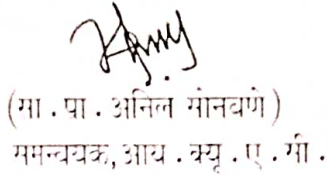 (सा . पा . अनिल सोनवणे)
समन्वयक, आय . क्यू . ए . सी .